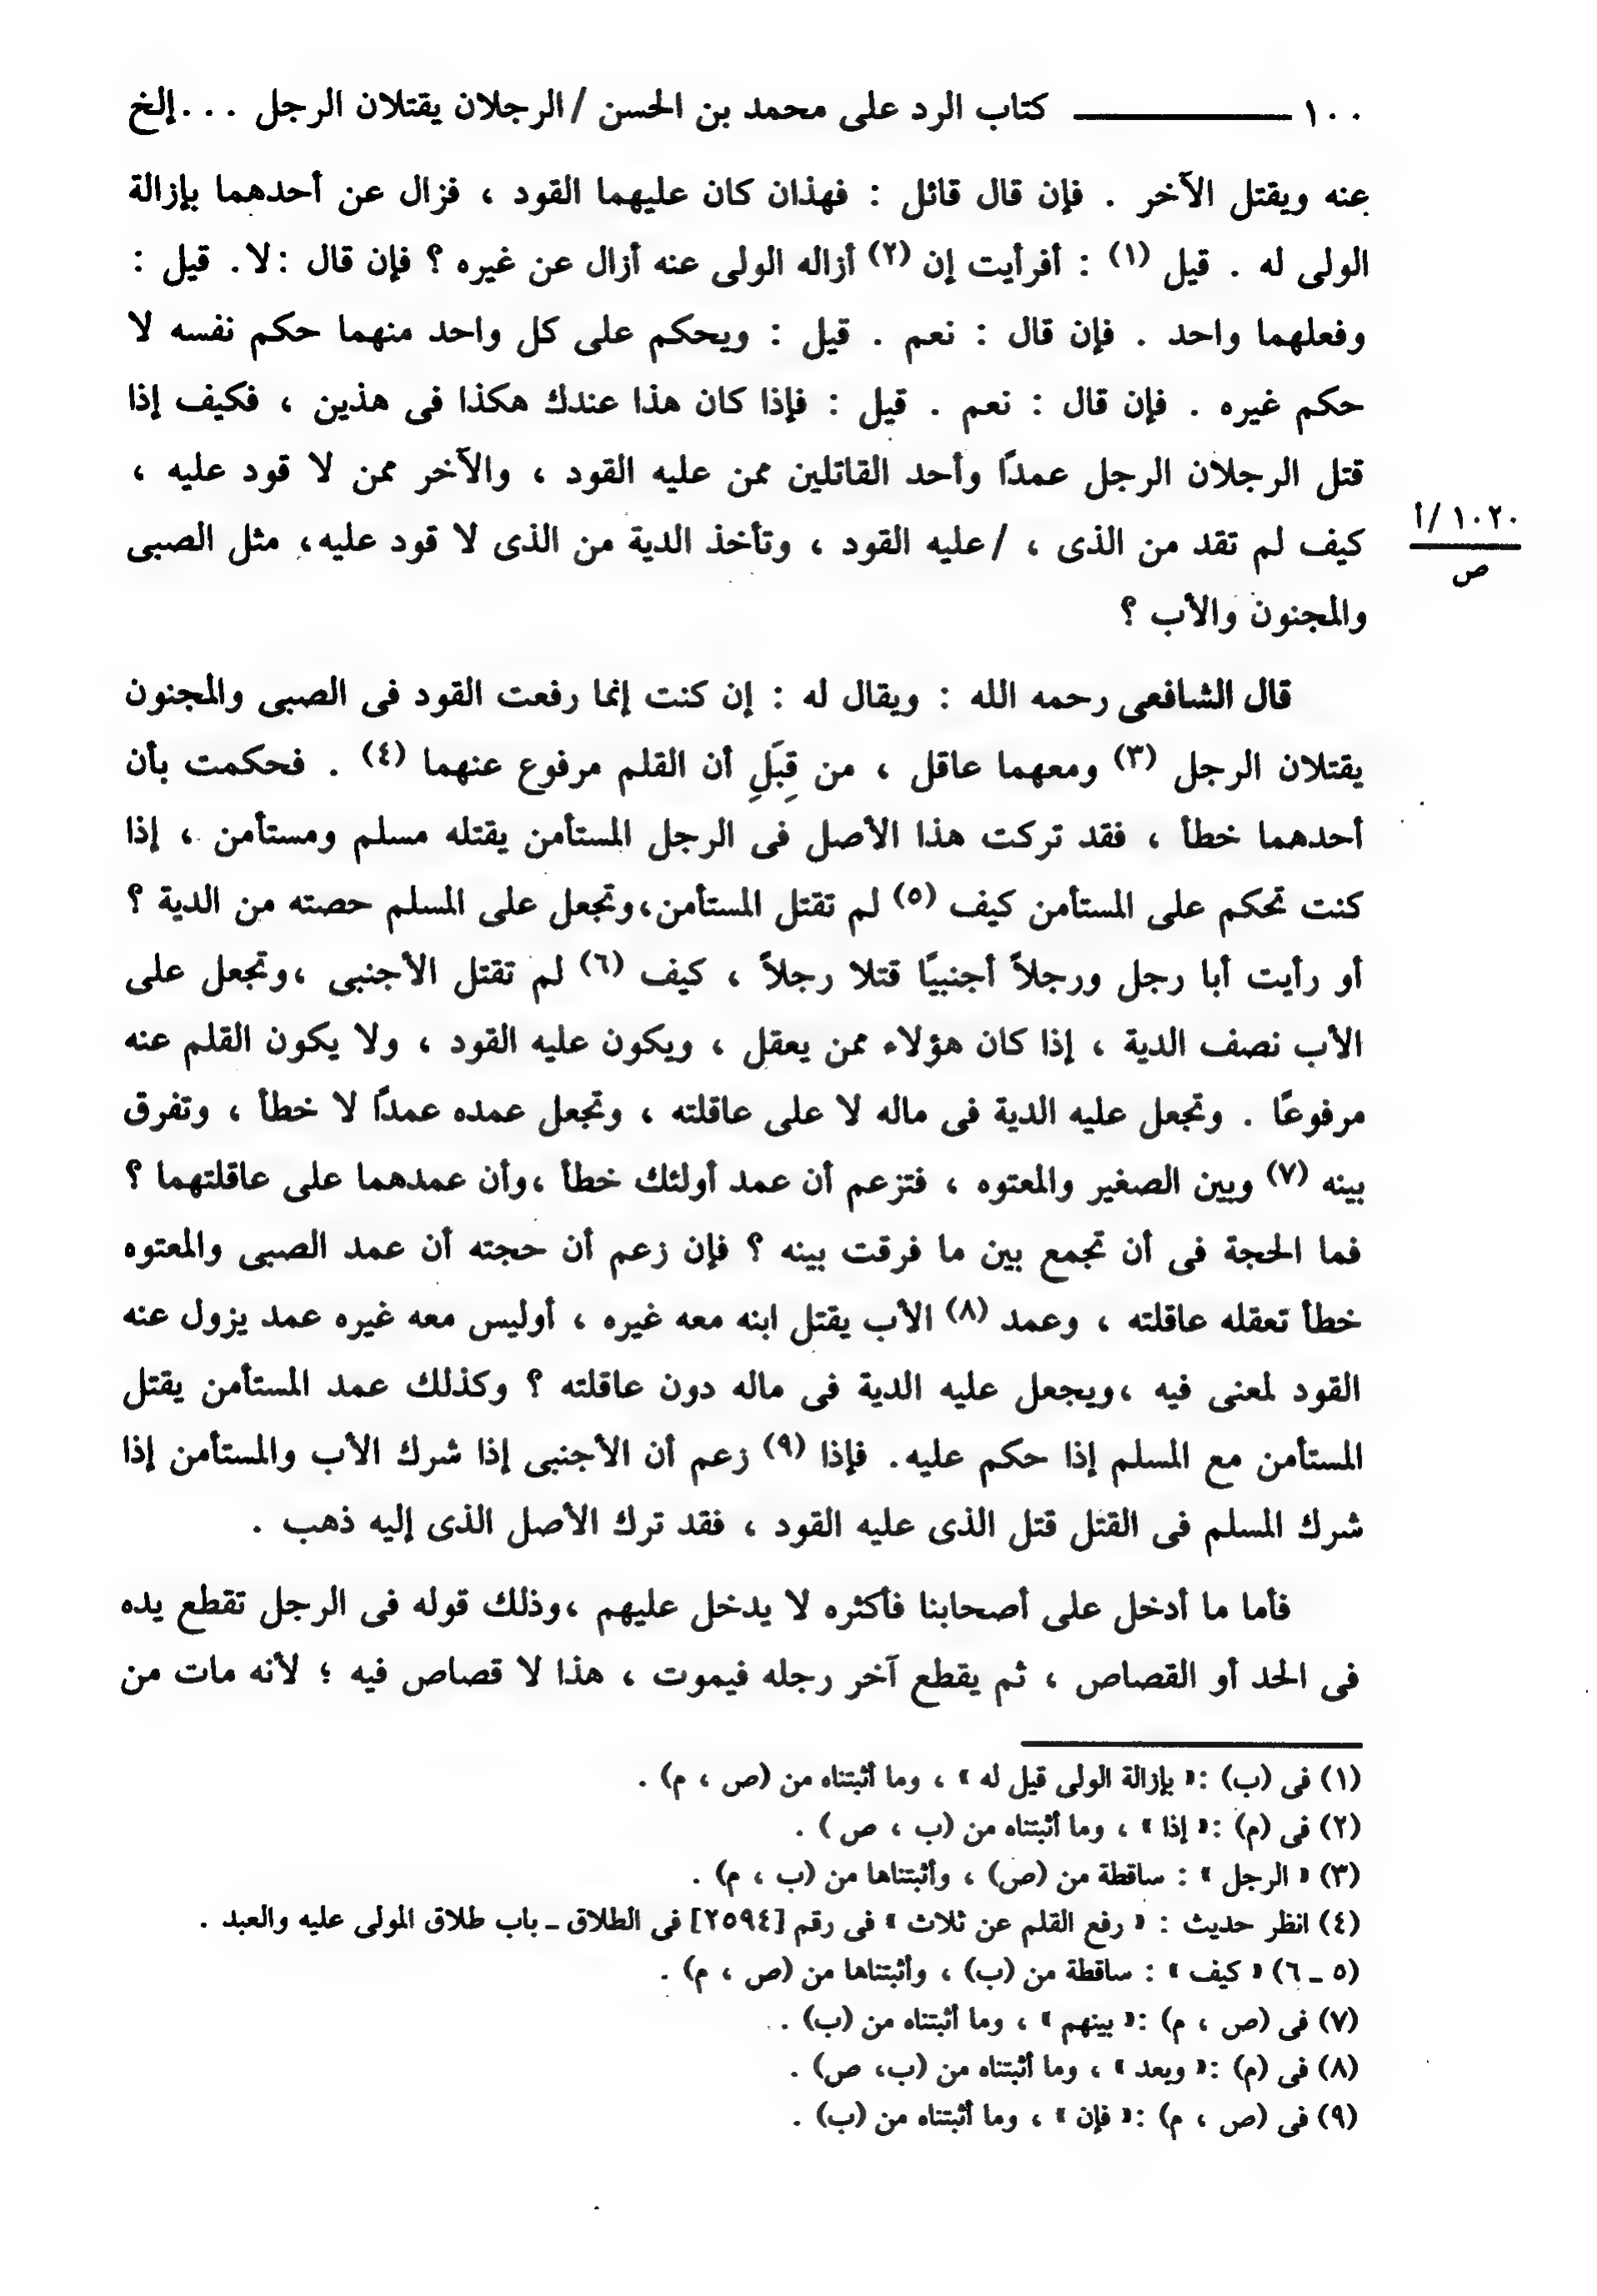 ١٠٠ كتاب الرد على محمد بن الحسن / الرجلان يقتلان الرجل . . . إلخ
عنه ويقتل الآخر . فإن قال قائل : فهذان كان عليهما القود ، فزال عن أحدهما بإزالة
الولى له . قيل (١) : أفرأيت إن (٢) أزاله الولى عنه أزال عن غيره ؟ فإن قال : لا . قيل :
وفعلهما واحد . فإن قال : نعم . قيل : ويحكم على كل واحد منهما حكم نفسه لا
حكم غيره . فإن قال : نعم . قيل : فإذا كان هذا عندك هكذا فى هذين ، فكيف إذا
قتل الرجلان الرجل عمدًا وأحد القاتلين ممن عليه القود ، والآخر ممن لا قود عليه ،
كيف لم تقد من الذى ، / عليه القود ، وتأخذ الدية من الذى لا قود عليه، مثل الصبى
١٠٢٠/ أ
ص
والمجنون والأب ؟
قال الشافعى رحمه الله : ويقال له : إن كنت إنما رفعت القود فى الصبى والمجنون
يقتلان الرجل (٣) ومعهما عاقل ، من قِبَلِ أن القلم مرفوع عنهما (٤) . فحكمت بأن
أحدهما خطأ ، فقد تركت هذا الأصل فى الرجل المستأمن يقتله مسلم ومستأمن ، إذا
كنت تحكم على المستأمن كيف (٥) لم تقتل المستأمن،وتجعل على المسلم حصته من الدية ؟
أو رأيت أبا رجل ورجلاً أجنبيًا قتلا رجلاً ، كيف (٦) لم تقتل الأجنبى ،وتجعل على
الأب نصف الدية ، إذا كان هؤلاء ممن يعقل ، ويكون عليه القود ، ولا يكون القلم عنه
مرفوعًا . وتجعل عليه الدية فى ماله لا على عاقلته ، وتجعل عمده عمدًا لا خطأ ، وتفرق
بينه (٧) وبين الصغير والمعتوه ، فتزعم أن عمد أولئك خطأ ،وأن عمدهما على عاقلتهما ؟
فما الحجة فى أن تجمع بين ما فرقت بينه ؟ فإن زعم أن حجته أن عمد الصبى والمعتوه
خطأ تعقله عاقلته ، وعمد (٨) الأب يقتل ابنه معه غيره ، أوليس معه غيره عمد يزول عنه
القود لمعنى فيه ،ويجعل عليه الدية فى ماله دون عاقلته ؟ وكذلك عمد المستأمن يقتل
المستأمن مع المسلم إذا حكم عليه. فإذا (٩) زعم أن الأجنبى إذا شرك الأب والمستأمن إذا
شرك المسلم فى القتل قتل الذى عليه القود ، فقد ترك الأصل الذى إليه ذهب .
فأما ما أدخل على أصحابنا فأكثره لا يدخل عليهم ،وذلك قوله فى الرجل تقطع يده
فى الحد أو القصاص ، ثم يقطع آخر رجله فيموت ، هذا لا قصاص فيه ؛ لأنه مات من
(١) فى (ب) :« بإزالة الولى قيل له » ، وما أثبتناه من (ص ، م) .
(٢) فى (م) :« إذا » ، وما أثبتناه من (ب ، ص ) .
(٣) « الرجل » : ساقطة من (ص) ، وأثبتناها من (ب ، م) .
(٤) انظر حديث : « رفع القلم عن ثلاث » فى رقم [٢٥٩٤] فى الطلاق ـ باب طلاق المولى عليه والعبد .
(٥ ـ ٦) « كيف » : ساقطة من (ب) ، وأثبتناها من (ص ، م) .
(٧) فى (ص ، م) :« بينهم » ، وما أثبتناه من (ب) .
(٨) فى (م) :« وبعد » ، وما أثبتناه من (ب، ص) .
(٩) فى (ص ، م) :« فإن » ، وما أثبتناه من (ب) .